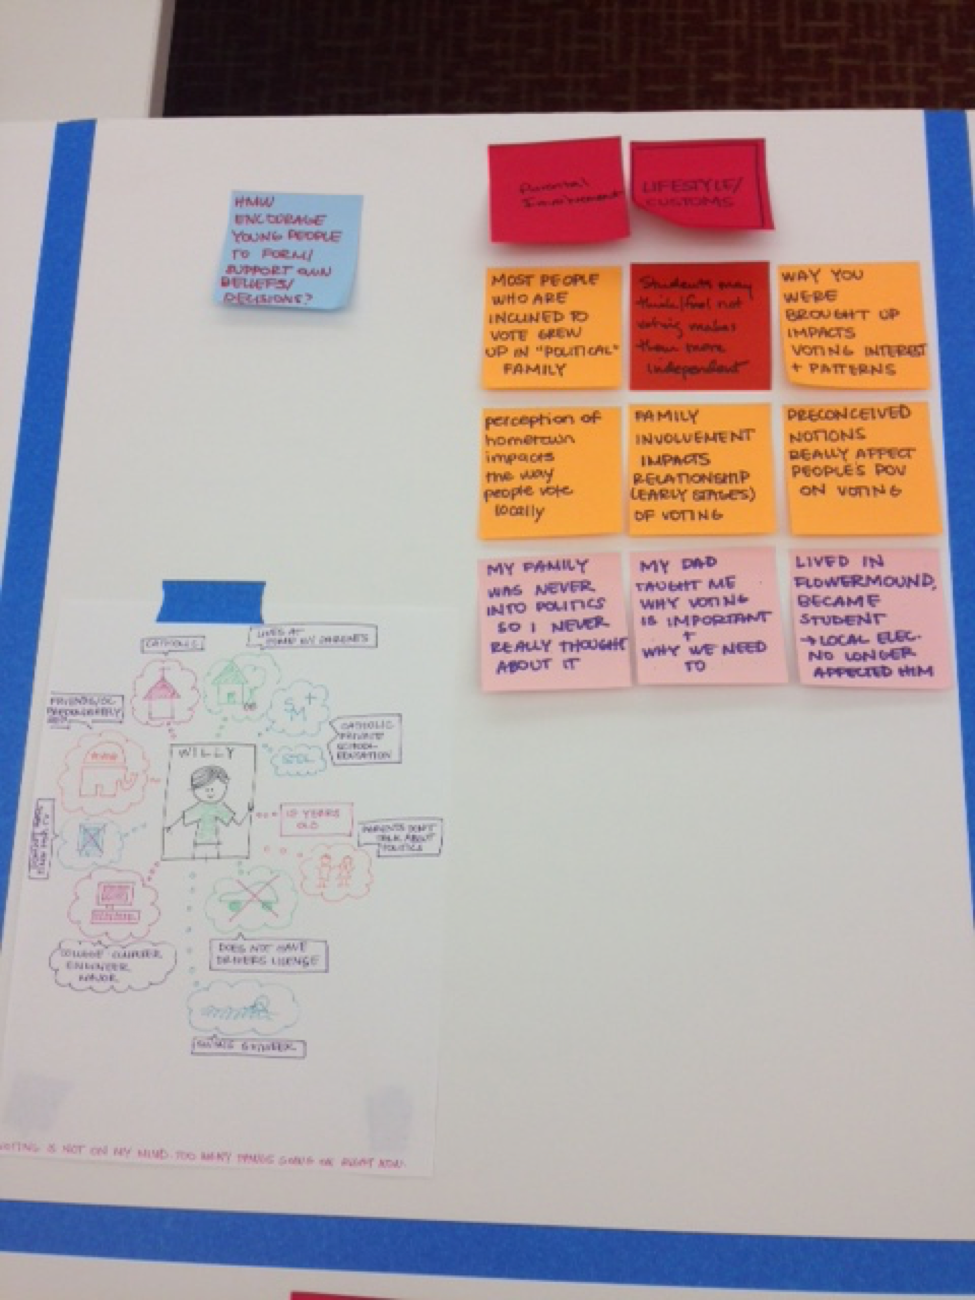 HMW
ENCOURAGE
YOUNG PEOPLE
TO FORM/
SUPPORT OWN
BELIEFS/
DECISIONS?
Parental
Involvement
LIFESTYLE/
CUSTOMS
MOST PEOPLE
WHO ARE
INCLINED TO
VOTE GREW
UP IN "POLITICAL"
FAMILY
Students may
think/feel not
voting makes
them more
independent
WAY YOU
WERE
BROUGHT UP
IMPACTS
VOTING INTEREST
+ PATTERNS
perception of
hometown
impacts
the way
people vote
locally
FAMILY
INVOLVEMENT
IMPACTS
RELATIONSHIP
(EARLY STAGES)
OF VOTING
PRECONCEIVED
NOTIONS
REALLY AFFECT
PEOPLE'S POV
ON VOTING
MY FAMILY
WAS NEVER
INTO POLITICS
SO I NEVER
REALLY THOUGHT
ABOUT IT
MY DAD
TAUGHT ME
WHY VOTING
IS IMPORTANT
+
WHY WE NEED
TO
LIVED IN
FLOWERMOUND,
BECAME
STUDENT
→ LOCAL ELEC.
NO LONGER
AFFECTED HIM
CATHOLIC
LIVES AT
HOME W/ PARENTS
CATHOLIC
PRIVATE
SCHOOL
EDUCATION
WILLY
YEARS
OLD
PARENTS DON'T
TALK ABOUT
POLITICS
COLLEGE COMPUTER
ENGINEER
MAJOR
DOES NOT HAVE
DRIVERS LICENSE
VOTING IS NOT ON MY MIND. TOO MANY THINGS GOING ON RIGHT NOW.